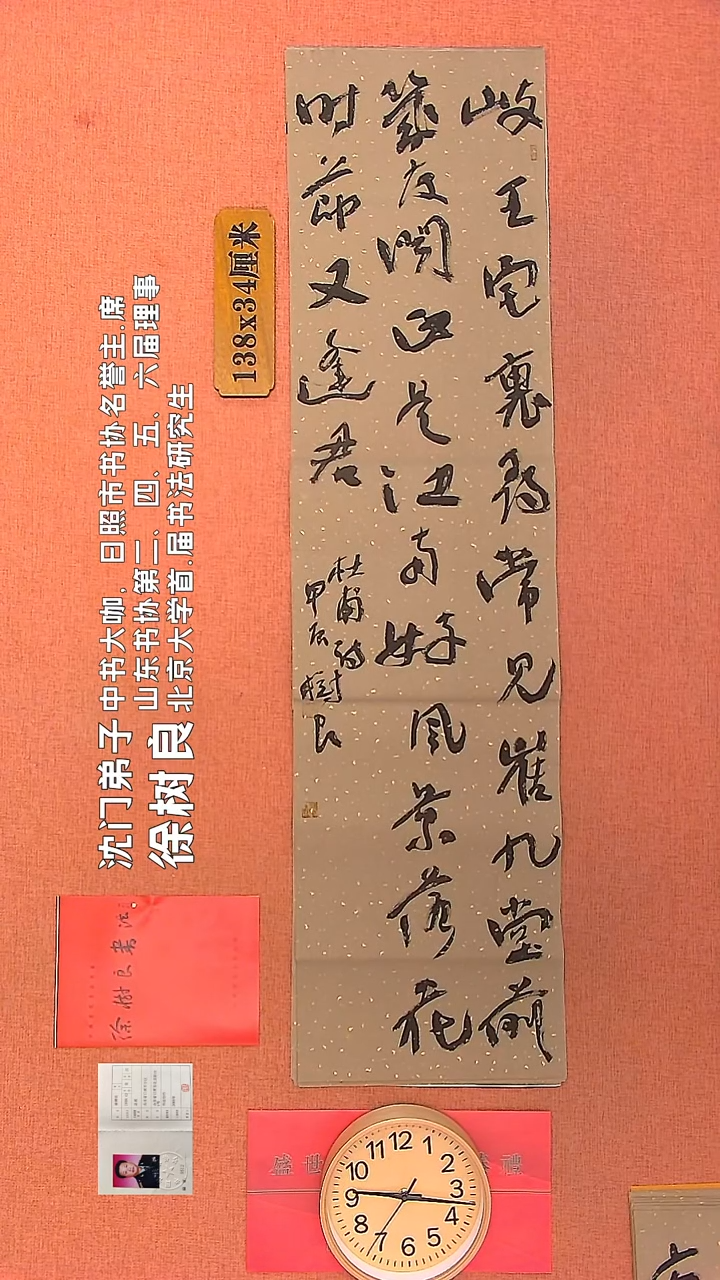 岐王宅裏尋常見崔九堂前
幾度聞正是江南好風景落花
時節又逢君
杜甫詩
甲辰樹良
138x34厘米
沈门弟子 中书大咖，日照市书协名誉主席
山东书协第三、四、五、六届理事
徐树良 北京大学首届书法研究生
徐树良书法
12
1
2
3
4
5
6
7
8
9
10
11